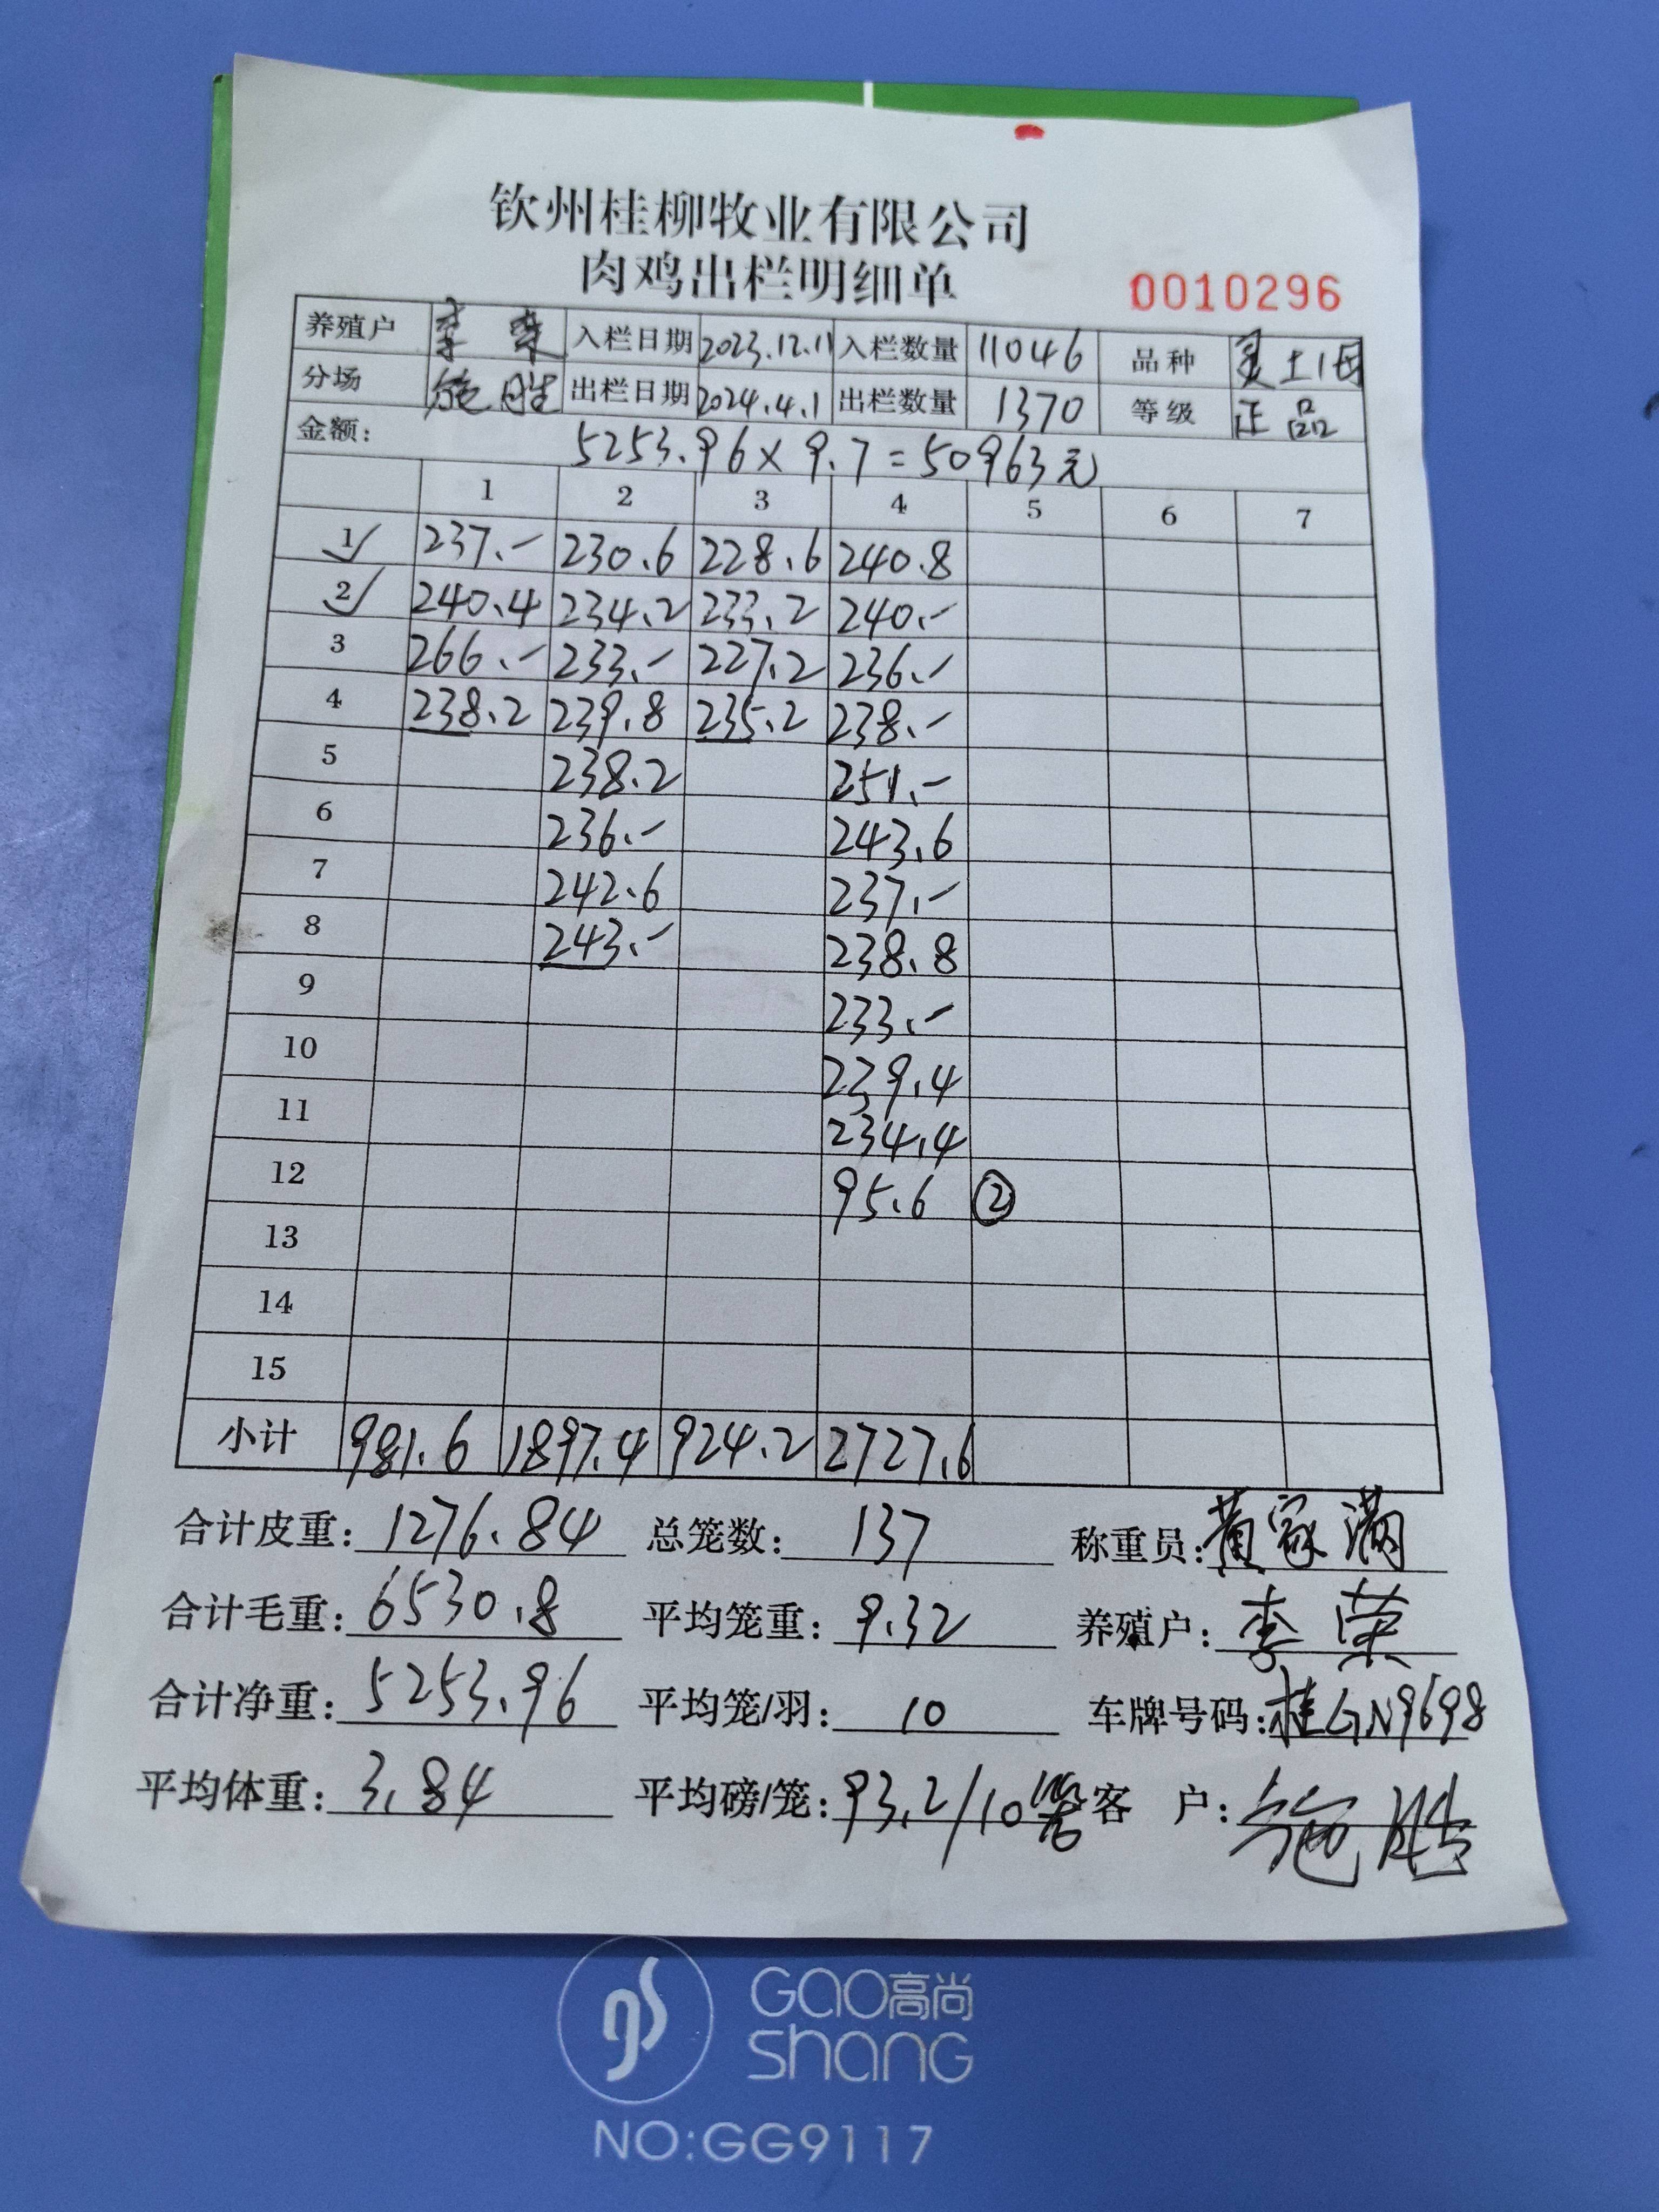 钦州桂柳牧业有限公司
肉鸡出栏明细单
0010296
养殖户 李荣 入栏日期 2023.12.11 入栏数量 11046 品种 灵土1母
分场 施胜 出栏日期 2024.4.1 出栏数量 1370 等级 正品
金额: 5253.96×9.7=50963元
1 2 3 4 5 6 7
1 237.- 230.6 228.6 240.8
2 240.4 234.2 233.2 240.-
3 266.- 233.- 227.2 236.-
4 238.2 239.8 235.2 238.-
5 238.2 251.-
6 236.- 243.6
7 242.6 237.-
8 243.- 238.8
9 233.-
10 239.4
11 234.4
12 95.6 ②
13
14
15
小计 981.6 1897.4 924.2 2727.6
合计皮重: 1276.84 总笼数: 137 称重员: 黄家满
合计毛重: 6530.8 平均笼重: 9.32 养殖户: 李荣
合计净重: 5253.96 平均笼/羽: 10 车牌号码: 桂GN9698
平均体重: 3.84 平均磅/笼: 93.2/10 客 户: 施胜
gs
GAO高尚
ShanG
NO:GG9117